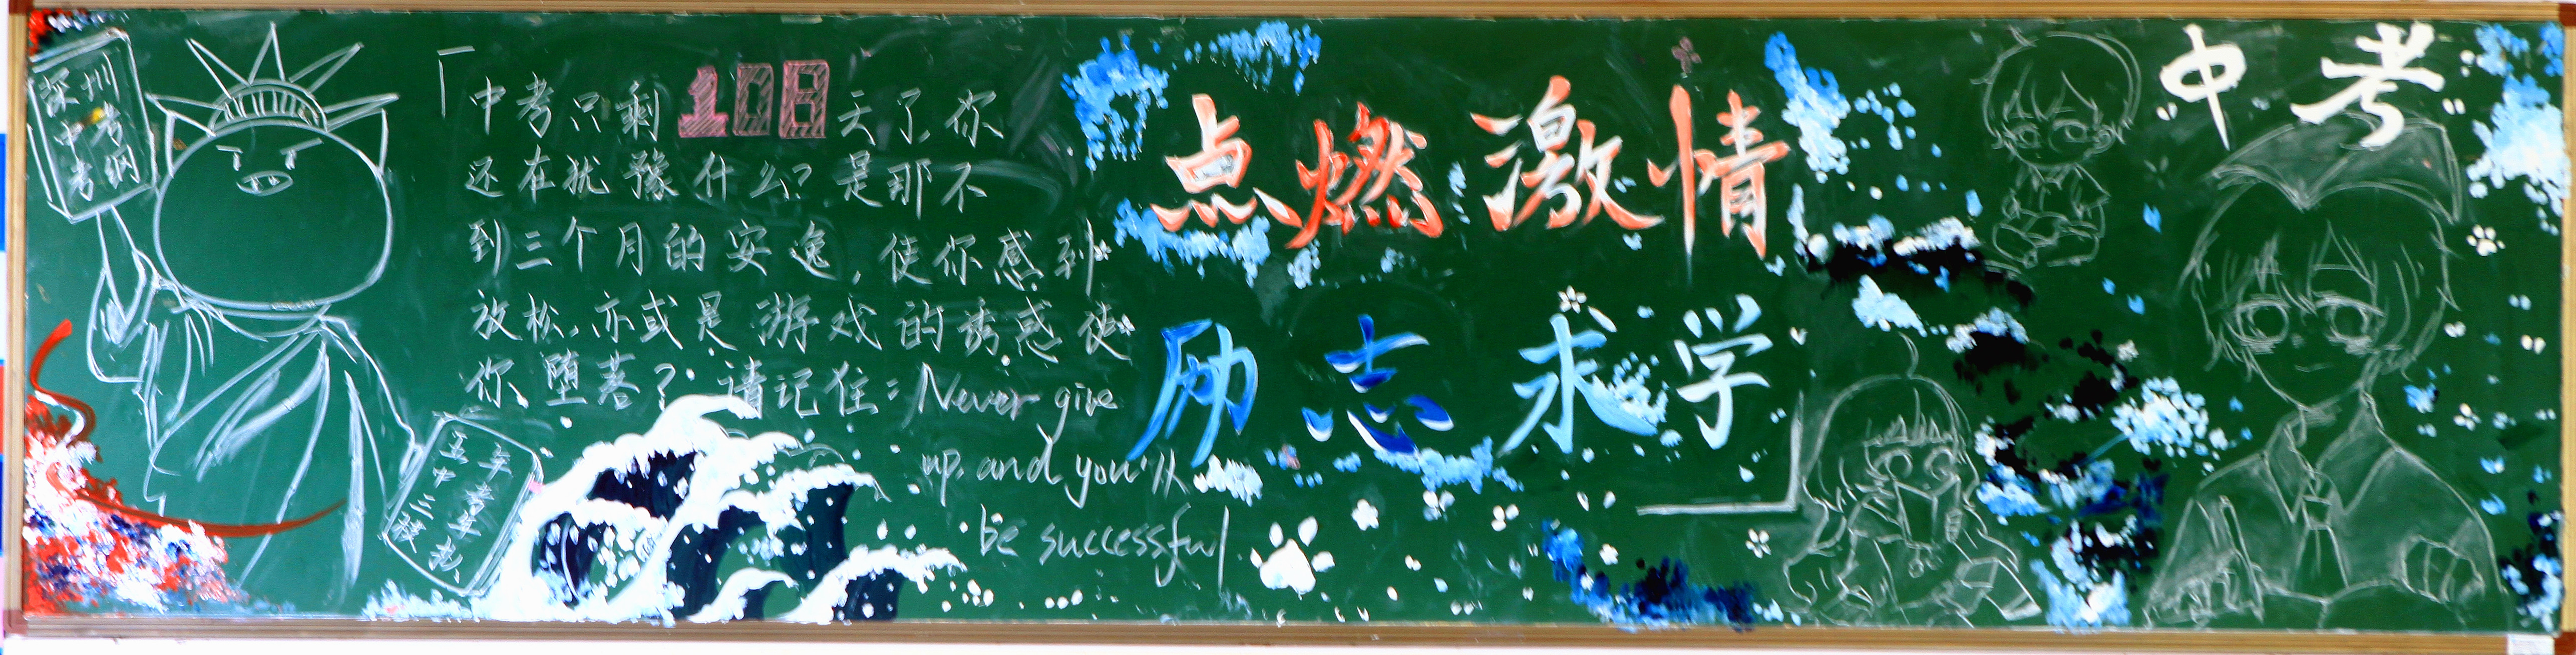 深圳
中考
考纲
中考只剩108天了,你
还在犹豫什么?是那不
到三个月的安逸,使你感到
放松,亦或是游戏的诱惑使
你堕落?请记住:Never give
up and you'll
be successful
点燃激情
励志求学
中考